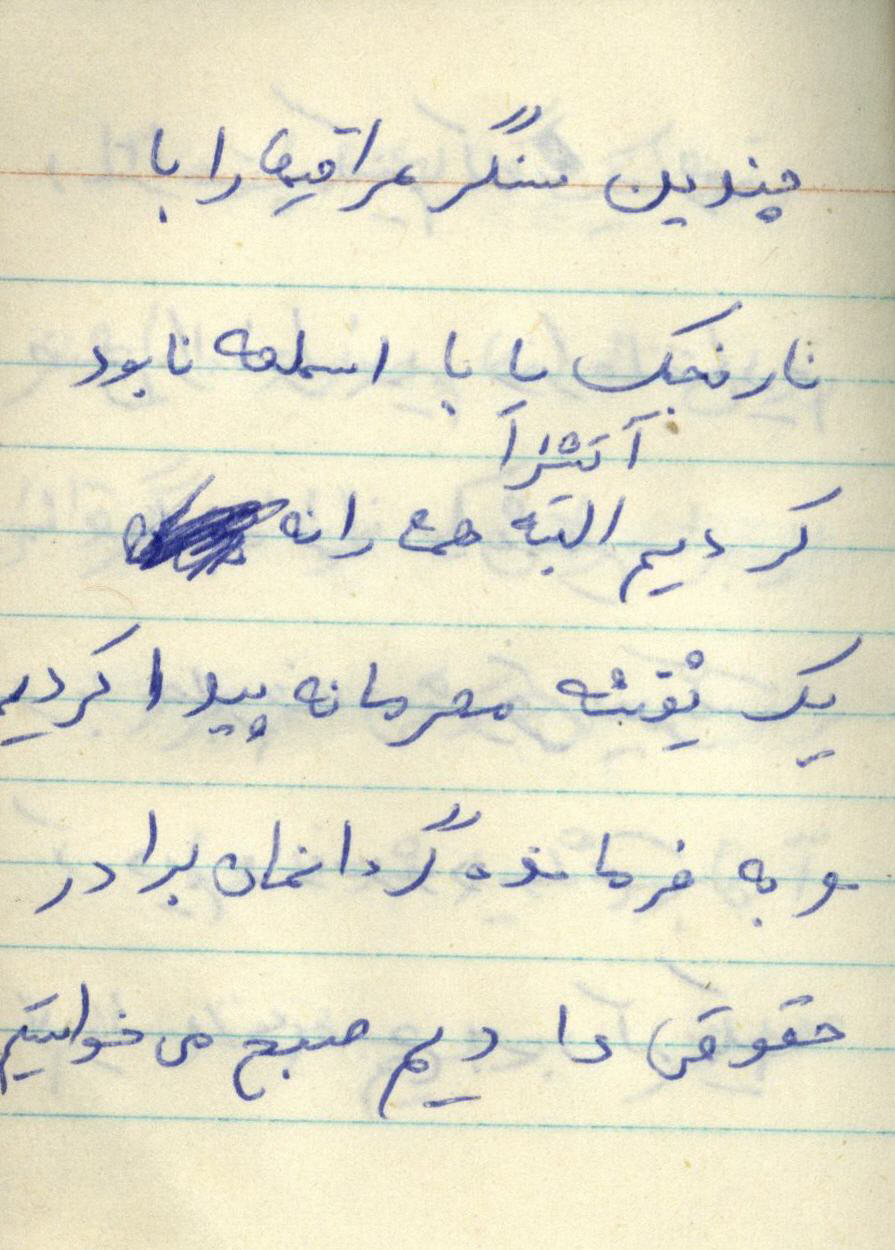 چندین سنگر عراقیها را با
نارنجک یا با اسلحه نابود
اکثراً
کردیم البته همه را نه
یک نقشه محرمانه پیدا کردیم
و به فرمانده گردانمان برادر
حقوقی دادیم صبح می خواستیم